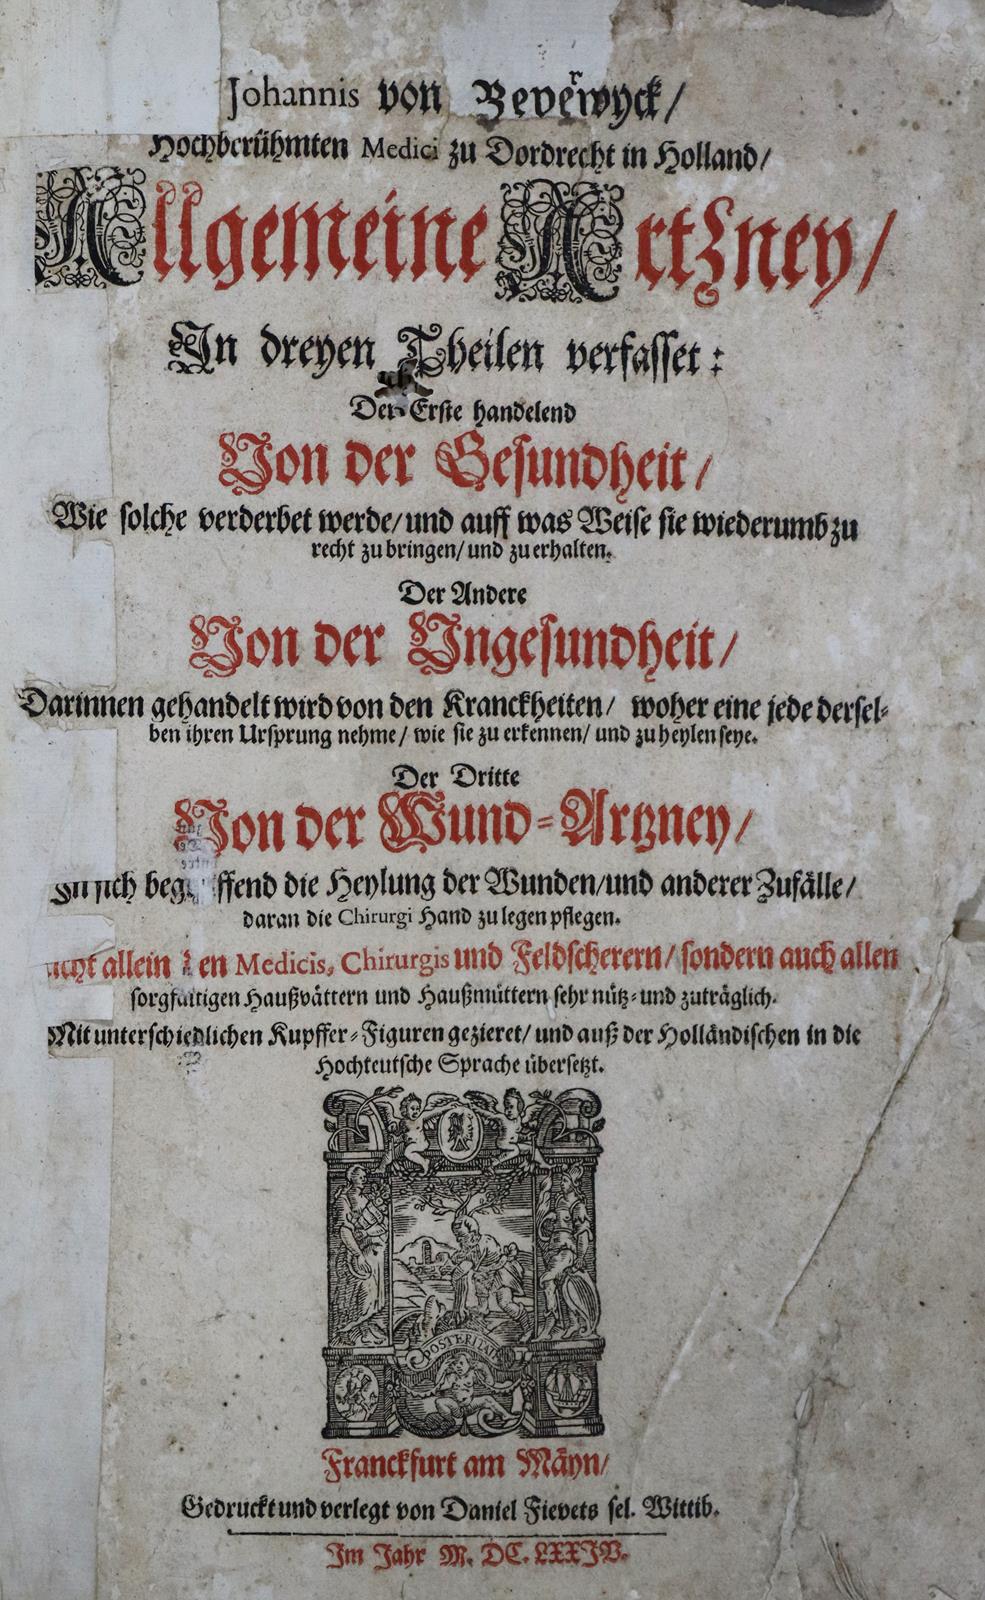 Johannis von Beverwyck/
Hochberühmten Medici zu Dordrecht in Holland/
Allgemeine Artzney/
In dreyen Theilen verfasset:
Der Erste handelend
Von der Gesundheit/
Wie solche verderbet werde/und auff was Weise sie wiederumb zu
recht zu bringen/und zu erhalten.
Der Andere
Von der Ungesundheit/
Darinnen gehandelt wird von den Kranckheiten/ woher eine jede dersel-
ben ihren Ursprung nehme/ wie sie zu erkennen/ und zu heylen seye.
Der Dritte
Von der Wund-Artzney/
In sich beg ffend die Heylung der Wunden/und anderer Zufälle/
daran die Chirurgi Hand zu legen pflegen.
icht allein en Medicis, Chirurgis und Feldscherern/ sondern auch allen
sorgfältigen Haußvättern und Haußmüttern sehr nütz- und zuträglich.
Mit unterschiedlichen Kupffer-Figuren gezieret/ und auß der Holländischen in die
Hochteutsche Sprache übersetzt.
POSTERITATI
Franckfurt am Mäyn/
Gedruckt und verlegt von Daniel Fievets sel. Wittib.
Im Jahr M. DC. LXXIV.